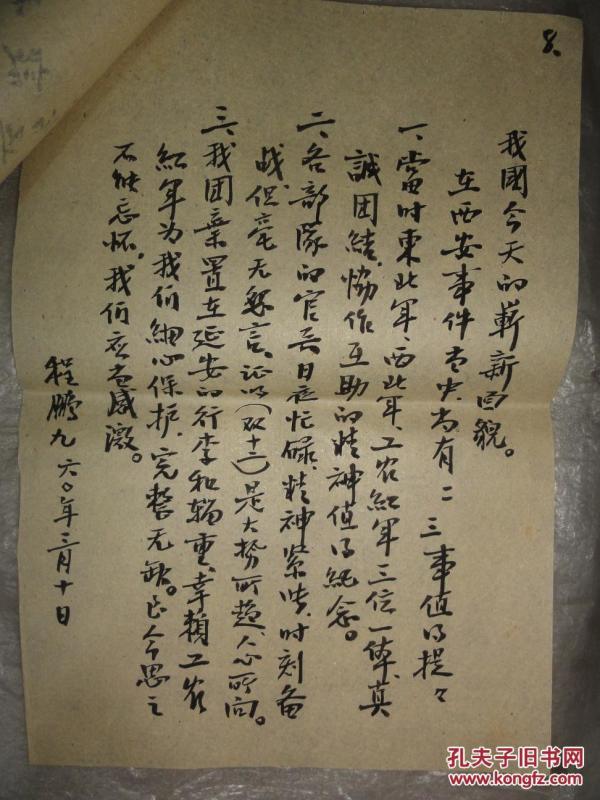 8.
我國今天的嶄新面貌。
在西安事件当中尚有二三事值得提々
一、當时東北軍、西北軍、工农紅軍三位一体、真
誠团結，恊作互助的精神值得紀念。
二、各部隊的官兵日夜忙碌，精神紧张，时刻备
战，但毫无怨言。证明（双十二）是大势所趋、人心所向。
三、我团棄置在延安的行李和輜重，幸賴工农
紅軍为我们細心保护，完整无缺。迄今思之
不能忘怀，我们应当感激。
程鵬九 六〇年三月十日
孔夫子旧书网
www.kongfz.com